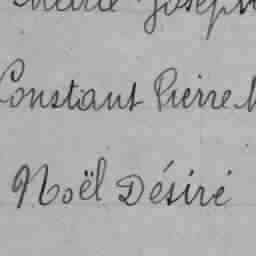 Marie Joseph
Constant Pierre
Noël Désiré